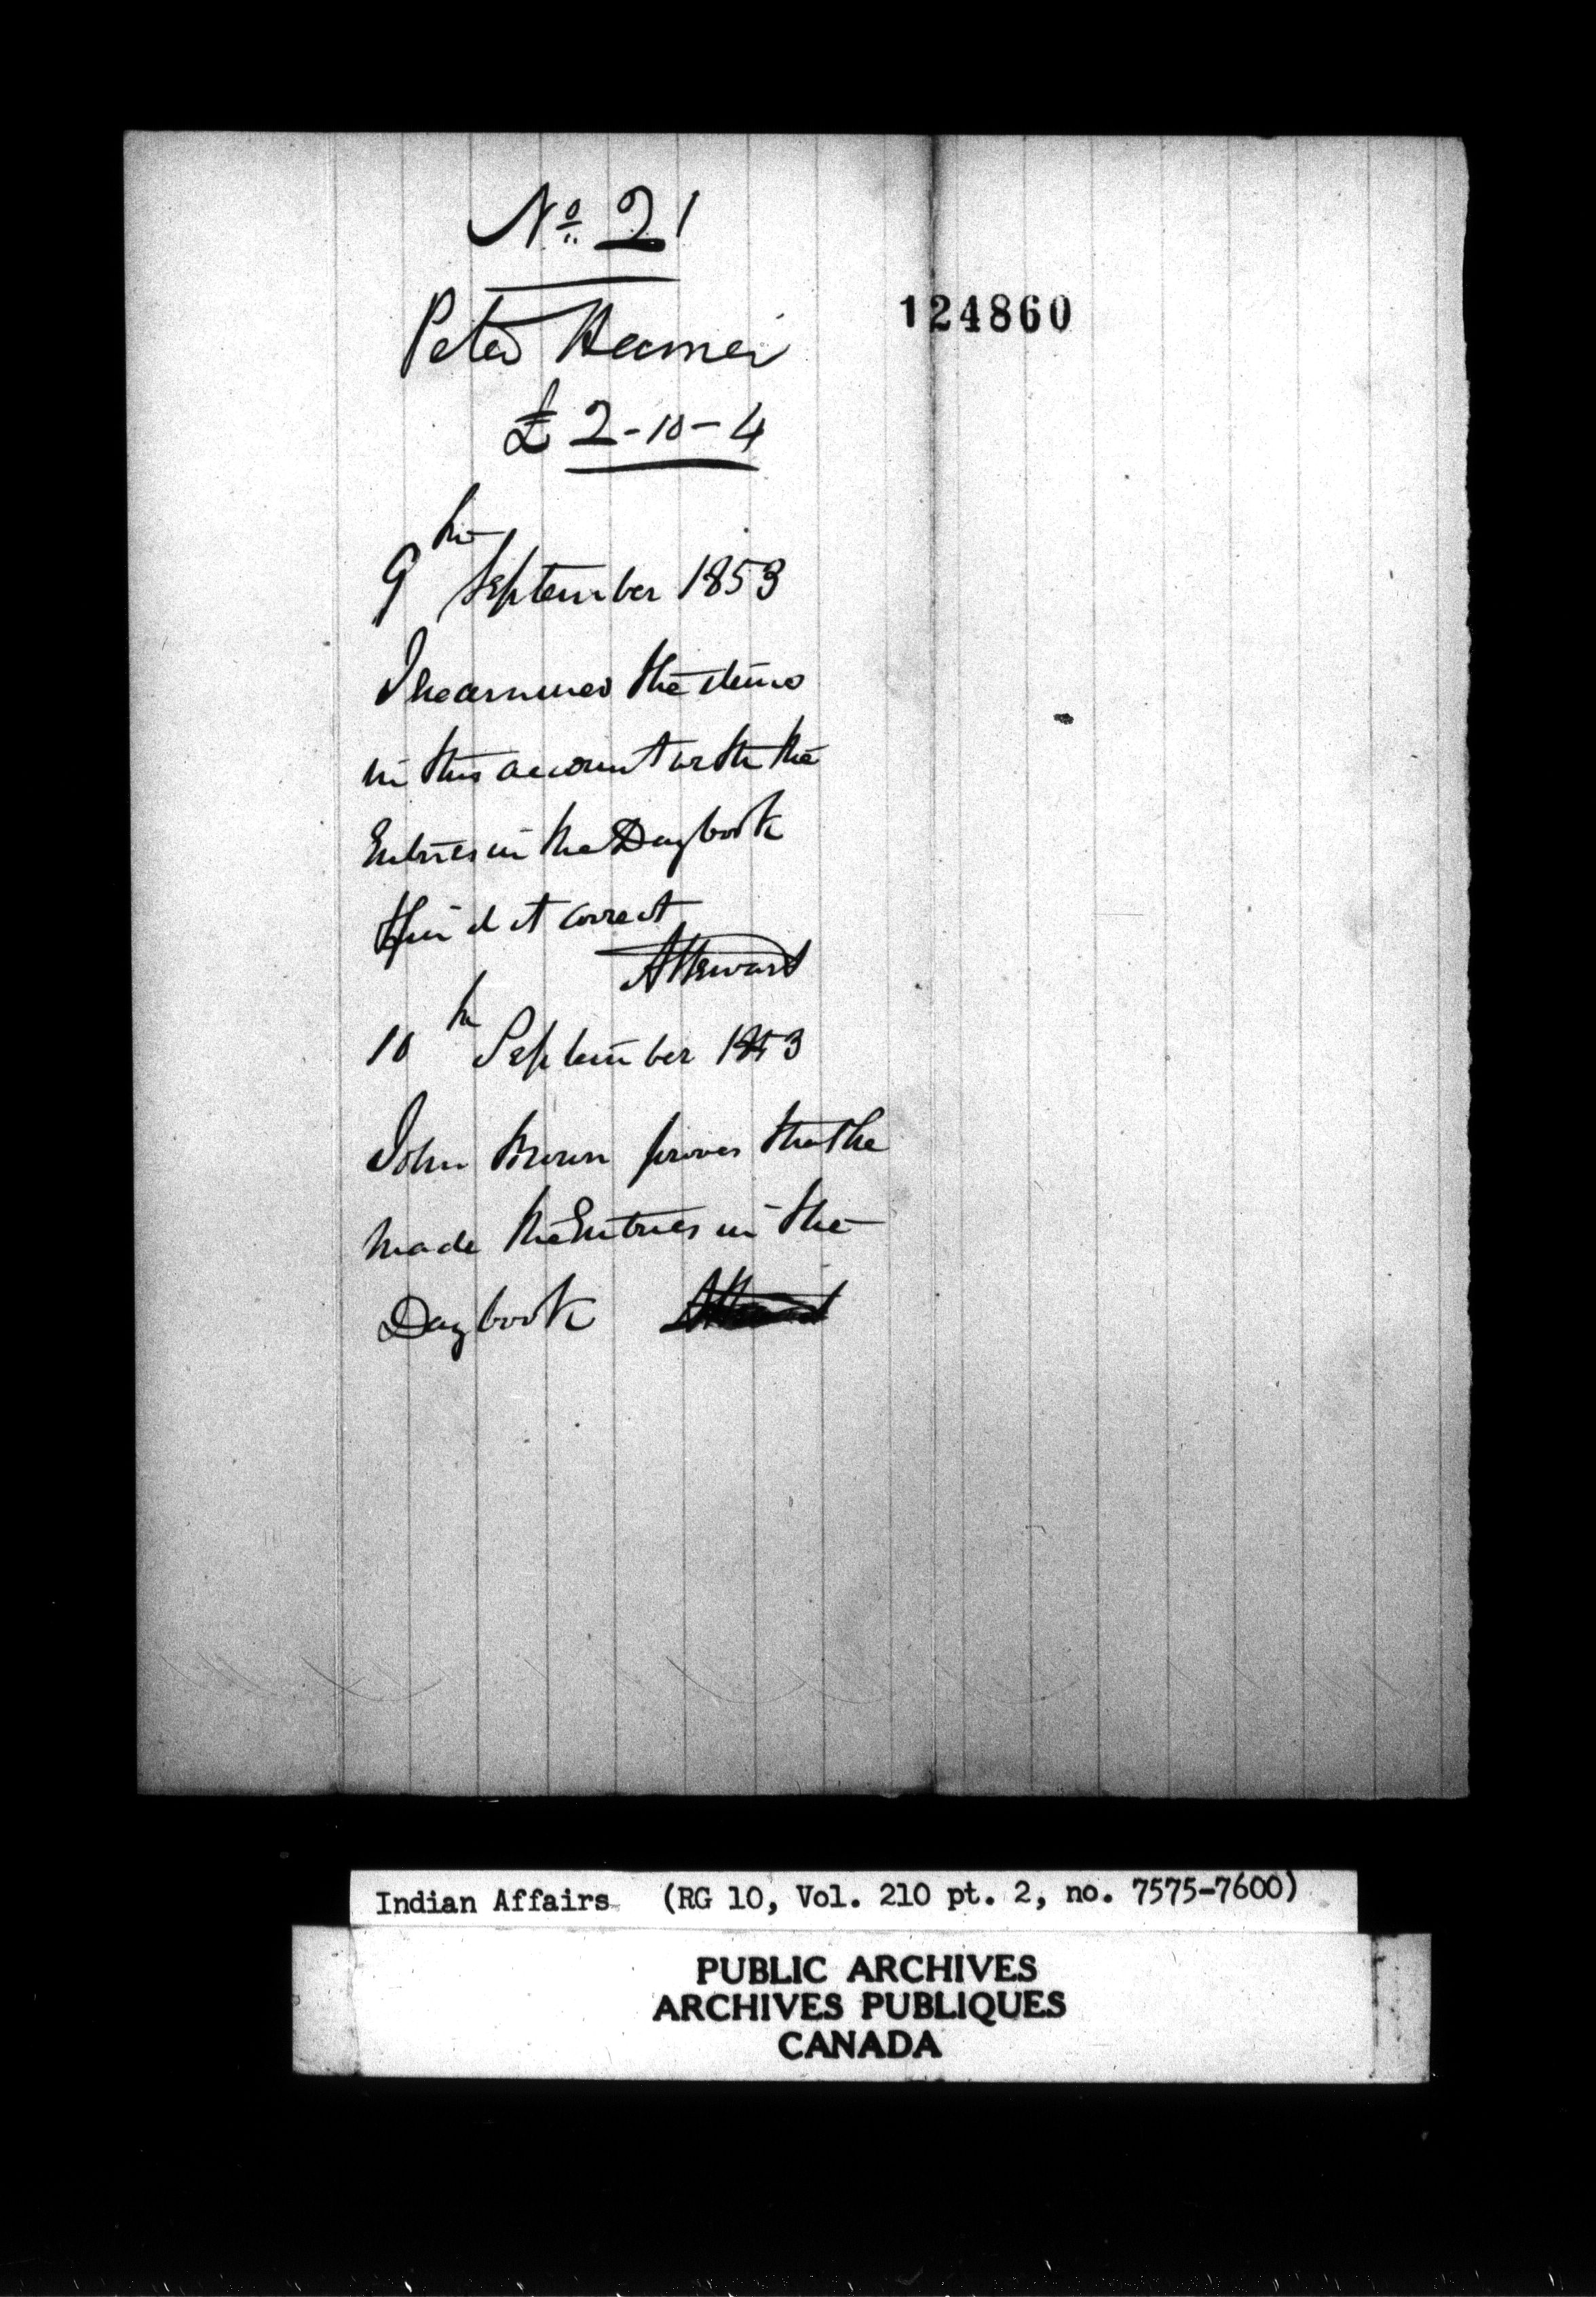 No. 21
124860
Peter
£ 2-10-4
9th September 1853
I examined the items
in this account with the
Entries in the Daybook
& find it correct
AStewart
10th September 1853
John Brown proves that he
made the Entries in the
Daybook
Indian Affairs (RG 10, Vol. 210 pt. 2, no. 7575-7600)
PUBLIC ARCHIVES
ARCHIVES PUBLIQUES
CANADA